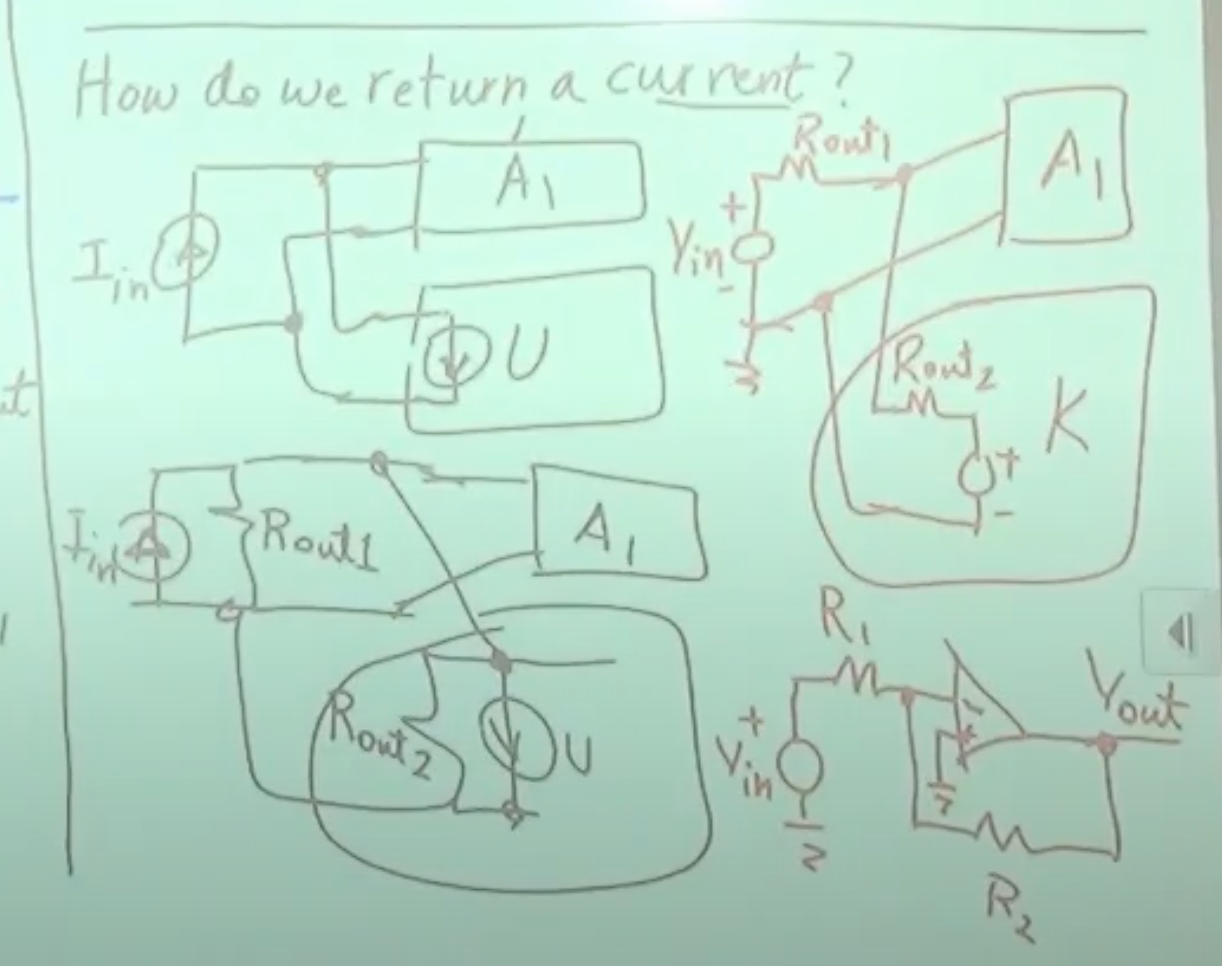 How do we return a current?
A1
Iin
U
Rout1
A1
+
Vin
-
Rout2
K
+
-
Iin
Rout1
A1
Rout2
U
R1
+
Vin
-
+
Vout
R2